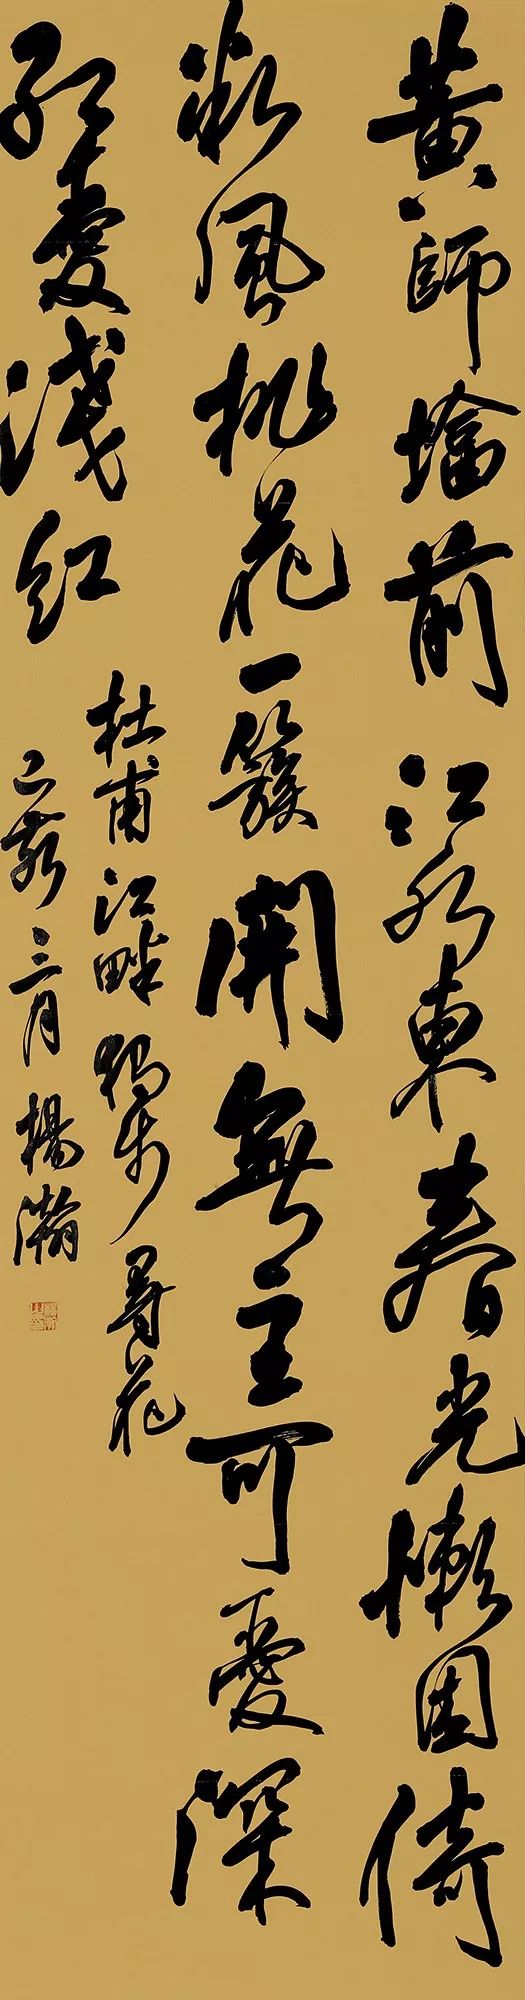 黃師墖前江水東春光懶困倚
微風桃花一簇開無主可愛深
紅愛淺紅
杜甫江畔獨步尋花
己亥三月楊瀚